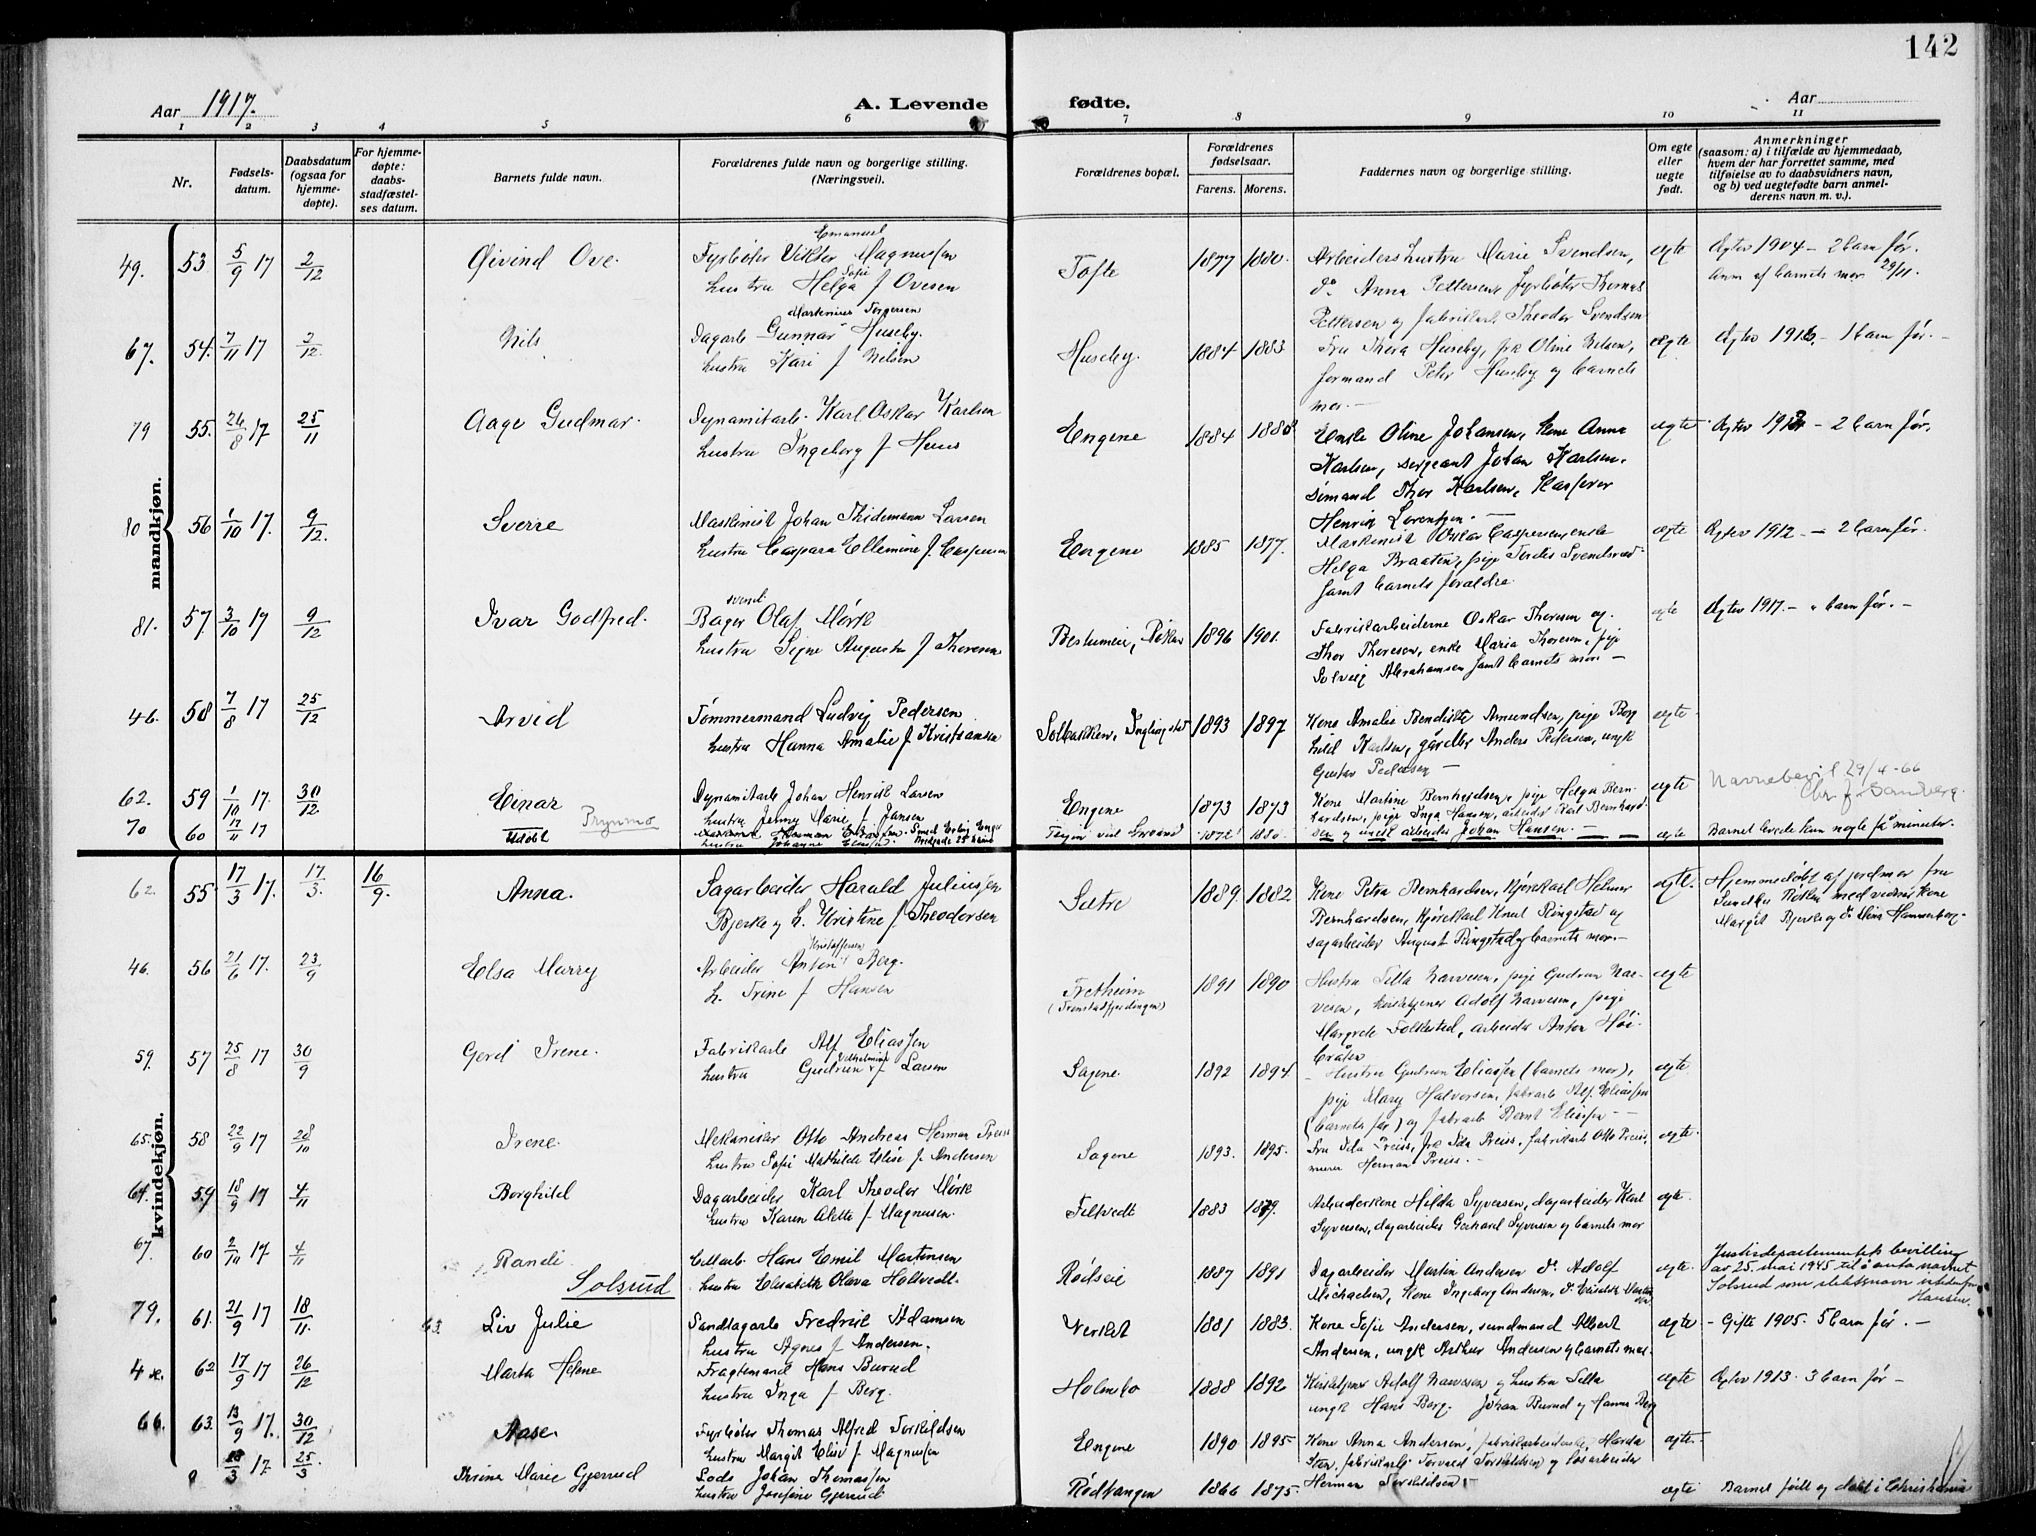 142
Aar 1917.
A. Levende fødte.
Aar
1 2 3 4 5 6 7 8 9 10 11
Nr.
Fødsels-
datum.
Daabsdatum
(ogsaa for
hjemme-
døpte).
For hjemme-
døpte:
daabs-
stadfæstel-
ses datum.
Barnets fulde navn.
Forældrenes fulde navn og borgerlige stilling.
(Næringsvei).
Forældrenes bopæl.
Forældrenes
fødselsaar.
Farens. Morens.
Faddernes navn og borgerlige stilling.
Om egte
eller
uegte
født.
Anmerkninger
(saasom: a) i tilfælde av hjemmedaab,
hvem der har forrettet samme, med
tilføielse av to daabsvidners navn,
og b) ved uegtefødte barn anmel-
derens navn m. v.).
mandkjøn.
49. 53 5/9 17 2/12 Øivind Ove.
Emanuel
Fyrbøter Viktor Magnussen
Sofie
hustru Helga f Ovesen
Tofte 1877 1880.
Arbeidershustru Marie Svendsen,
do Anna Pettersen, fyrbøter Thomas
Pettersen og fabrikarb. Theodor Svendsen
egte
Egtev 1904 – 2 barn før.
Anm af barnets mor 29/11.
67. 54. 7/11 17 2/12. Nils
Martinius Torgersen
Dagarb Gunnar Huseby.
hustru Kari f Nelsen
Huseby. 1884 1883
Fru Thora Huseby, frk Oline Nelsen,
formand Peter Huseby og barnets
mor. —
egte
Egtev 1916. – 1 barn før. –
79 55. 26/8 17 25/11 Aage Gudmar.
Dynamitarb. Karl Oskar Karlsen
hustru Ingeborg f Heuss
Engene 1884 1888
Enke Oline Johansen, kone Anna
Karlsen, sergeant Johan Karlsen.
sømand Thor Karlsen, kasserer
Henrik Lorentzen. —
egte
Egtev 1912 – 2 barn før.
80 56 1/10 17. 9/12. Sverre
Maskinist Johan Thidemann Larsen
hustru Caspara Ellemine f. Caspersen
Engene 1885 1877.
Maskinist Oskar Caspersen, enke
Helga Braaten, pige Tordis Svendsrud
samt barnets forældre.
egte
Egtev 1912. – 2 barn før.
81. 57. 3/10 17 9/12 Ivar Godtfred.
svend.
Bager Olaf Mørk
hustru Signe Augusta f Thoresen
1896 1901.
Fabrikarbeiderne Oskar Thoresen og
Thor Thoresen, enke Maria Thoresen, pige
Solveig Abrahamsen samt barnets mor —
egte
Egtev 1917. – " barn før. –
46. 58 7/8 17 25/12 Arvid
Tømmermand Ludvig Pedersen
hustru Hanna Amalie f Kristiansen
1893 1897
Kone Amalie Bendikte Amundsen, pige Borg
hild Karlsen, gårdbr Anders Pedersen, ungk
Gustav Pedersen —
egte
62. 59 1/10 17. 30/12 Einar
Prynmo
Dynamitarb Johan Henrik Larsen
hustru Jenny Marie f Jansen
Engene 1873 1873
Kone Martine Bernhardsen, pige Helga Bern-
hardsen, pige Inga Hansen, arbeider Karl Bernhard-
sen og ungk arbeider Johan Hansen. —
egte
Navnebevil 29/4-66
Chr. J. Sandberg.
70 60 17/11 17 Udøbt
egte
Barnet levde kun nogle få minuter.
kvindekjøn.
62. 55 17/3 17. 17/3. 16/9. Anna.
Sagarbeider Harald Juliussen
Bjerke og h. Kristine f Theodorsen
Sætre 1889. 1882
Kone Petra Bernhardsen, kjørekarl Helmer
Bernhardsen, kjørekarl Knut Ringstad og
sagarbeider August Ringstad og barnets mor. —
egte.
Hjemmedøbt af jordmor fru
Sundby Røken med vidner kone
Margit Bjerke og do Mina Hammerberg.
46. 56 21/6 17. 23/9 Elsa Marry
Kristoffersen
Arbeider Anton Berg.
h. Trine f Hansen
Tretheim 1891 1890
Hustru Tilla Narvesen, pige Gudrun Nar-
vesen, kirketjener Adolf Narvesen, pige
Margrete Folkestad, arbeider Anton Høi-
bråten
egte
59. 57 25/8 17 30/9 Gerd Irene.
Fabrikarb Alf Eliassen
Vilhelmine
hustru Gudrun f Larsen
Sagene. 1892 1894.
Hustru Gudrun Eliassen (barnets mor),
pige Mary Halvorsen, fabrarb Alf. Eliassen
(barnets far) og fabrarb Bernt Eliassen —
egte
65. 58 22/9 17 28/10 Irene.
Mekaniker Otto Andreas Herman Preiss
hustru Sofie Mathilde Elise f. Andersen
Sagene 1893. 1895.
Fru Ida Preiss, frk Ida Preiss, fabrikarb Otto Preiss,
murer Herman Preiss. –
egte.
64. 59 18/9 17 4/11 Borghild
Dagarbeider Karl Theodor Mørk
hustru Karen Alette f. Magnusen.
Filtvedt 1883 1879.
Arbeiderkone Hilda Syversen, dagarbeider Karl
Syversen, dagarbeider Gerhard Syversen og barnets mor
egte.
67. 60 2/10 17 4/11 Randi
Solsrud
Cellarb. Hans Emil Martinsen
hustru Elisabeth Olava Holtvedt.
Rødseie 1887 1891
Dagarbeider Martin Andersen do Adolf
Michaelsen, kone Ingeborg Andersen, do Elisabeth
egte.
Justisdepartementets bevilling
av 25. mai 1945 til å anta navnet
Solsrud som slektsnavn istedenfor
Hansen.
79. 61. 21/9 17 18/11. 63. Liv Julie
Sandtagarb Fredrik Adamsen
hustru Agnes f Andersen.
Verket 1881 1883.
Kone Sofie Andersen, sundmand Albert
Andersen, ungk Arthur Andersen og barnets mor.
egte
– Gifte 1905. 5 barn før. –
4 62 17/9 17 26/12 Marta Helene
Fragtemand Hans Burud
hustru Inga f Berg.
Holmsbo 1888 1892
Kirketjener Adolf Narvesen og hustru Tilla
ungk Hans Berg. Johan Burud og Hanna Berg
egte
Egtev 1913. 3 barn før –
66. 63. 13/9 17. 30/12 Aase.
Fyrbøter Thomas Alfred Torkildsen
hustru Margit Elise f Magnussen
Engene 1890 1895
Kone Anna Andersen,
Herman Torkildsen –
egte.
17. 25/3. Thrine Marie Gjerrud
Lods Johan Thomassen
hustru Josefine Gjerrud
Rødtangen 1866 1875.
egte
Barnet født og døbt i Christiania